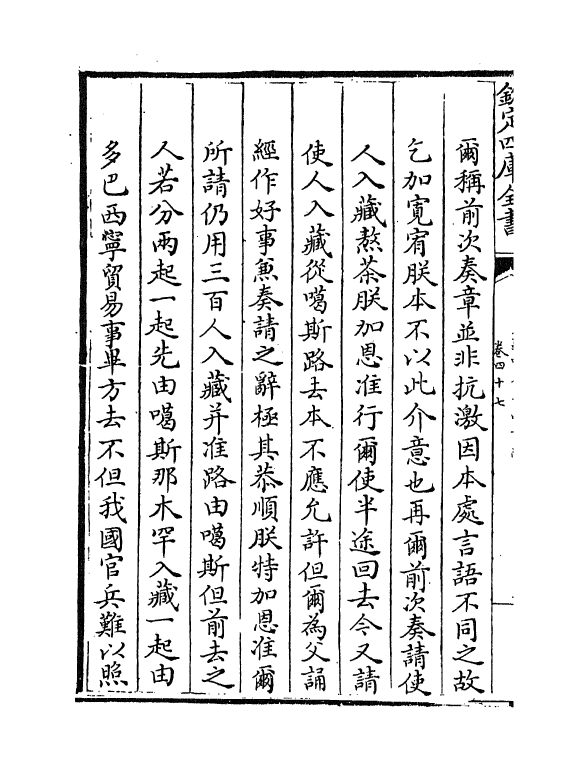 欽定四庫全書
卷四十七
爾稱前次奏章並非抗激因本處言語不同之故
乞加寬宥朕本不以此介意也再爾前次奏請使
人入藏熬茶朕加恩准行爾使半途回去今又請
使人入藏從噶斯路去本不應允許但爾為父誦
經作好事兼奏請之辭極其恭順朕特加恩准爾
所請仍用三百人入藏并准路由噶斯但前去之
人若分兩起一起先由噶斯那木罕入藏一起由
多巴西寧貿易事畢方去不但我國官兵難以照